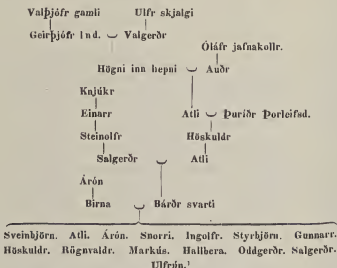 Valþjófr gamli Ulfr skjalgi
Geirþjófr lnd. Valgerðr
Óláfr jafnakollr.
Högni inn hepni Auðr
Knjúkr
Einarr Atli Þuríðr Þorleifsd.
Steinolfr Höskuldr
Salgerðr Atli
Árón
Birna Bárðr svarti
Sveinbjörn. Atli. Árón. Snorri. Ingolfr. Styrbjörn. Gunnarr.
Höskuldr. Rögnvaldr. Markús. Hallbera. Oddgerðr. Salgerðr.
Ulfrún.¹